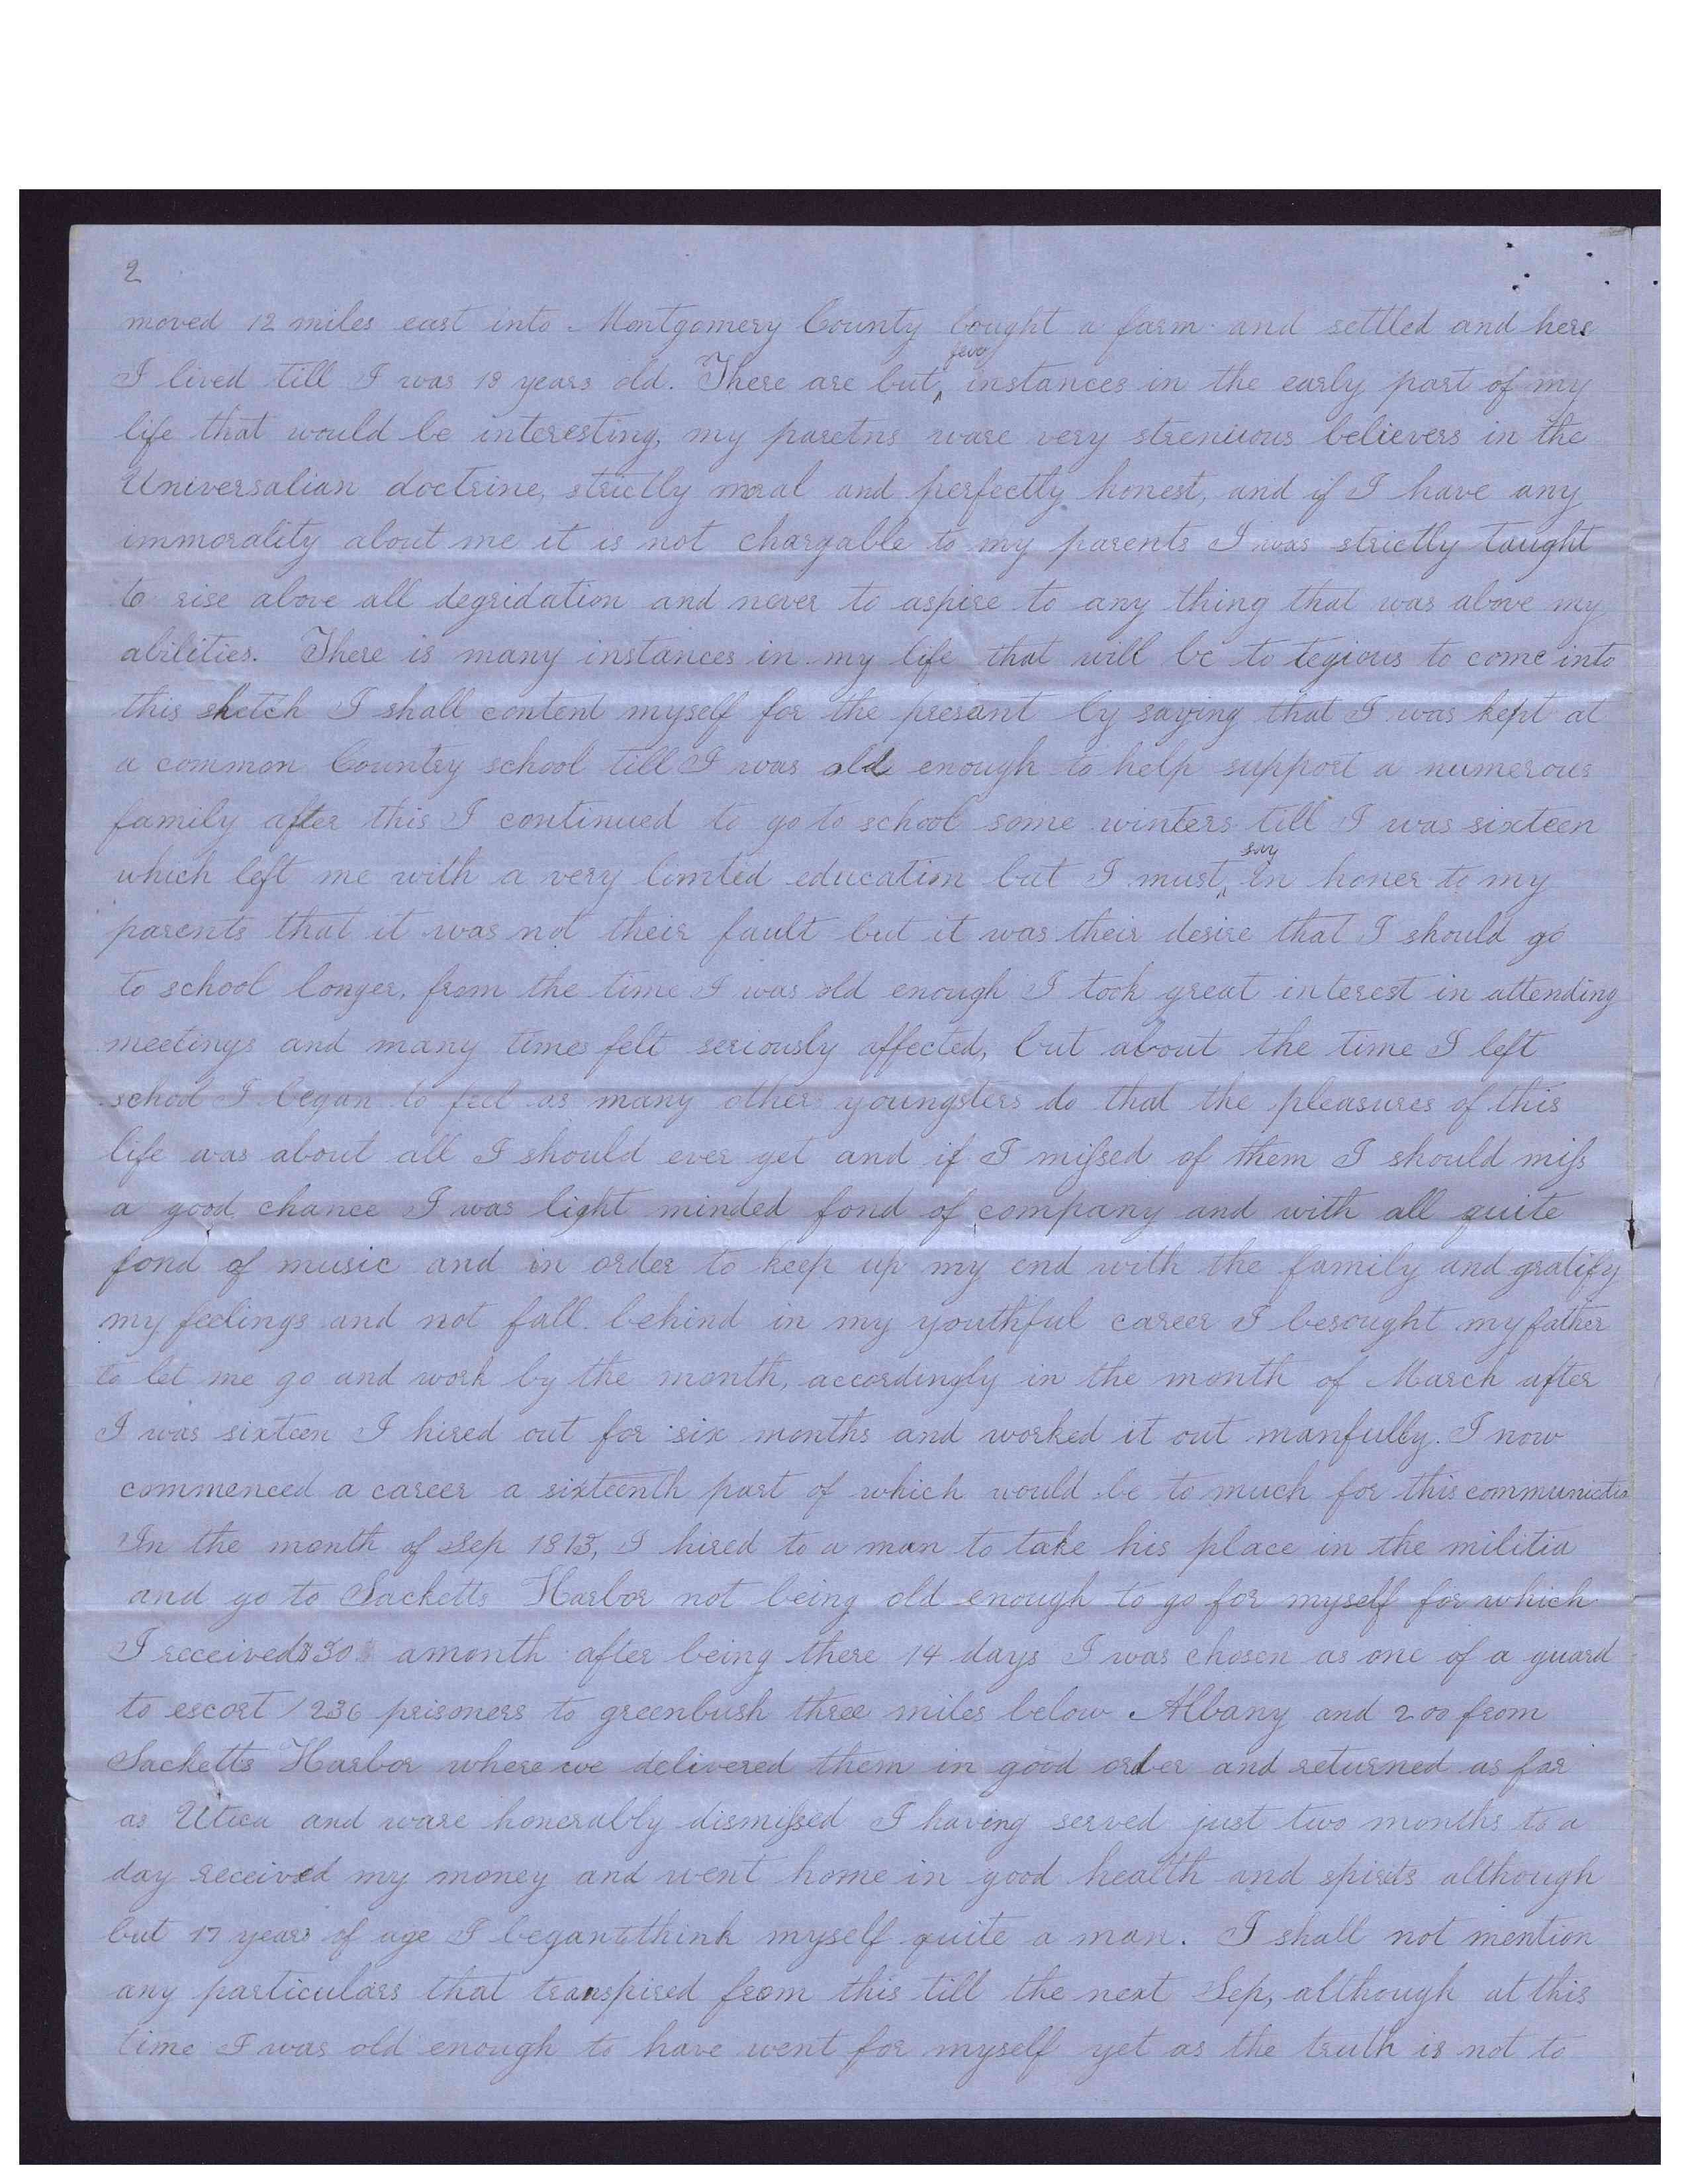 2
moved 12 miles east into Montgomery County bought a farm and settled and here
few
I lived till I was 18 years old. There are but^ instances in the early part of my
life that would be interesting, my paretns ware very strenuous believers in the
Universalian doctrine, strictly moral and perfectly honest, and if I have any
immorality about me it is not chargable to my parents I was strictly taught
to rise above all degridation and never to aspire to any thing that was above my
abilities. There is many instances in my life that will be to tegious to come into
this sketch I shall content myself for the presant by saying that I was kept at
a common Country school till I was old enough to help support a numerous
family after this I continued to go to school some winters till I was sixteen
say
which left me with a very limted education but I must^ in honer to my
parents that it was not their fault but it was their desire that I should go
to school longer, from the time I was old enough I took great interest in attending
meetings and many times felt seriously affected, but about the time I left
school I began to feel as many other youngsters do that the pleasures of this
life was about all I should ever get and if I missed of them I should miss
a good chance I was light minded fond of company and with all quite
fond of music and in order to keep up my end with the family and gratify
my feelings and not fall behind in my youthful career I besought my father
to let me go and work by the month, accordingly in the month of March after
I was sixteen I hired out for six months and worked it out manfully. I now
commenced a career a sixteenth part of which would be to much for this communicatio
In the month of Sep 1813, I hired to a man to take his place in the militia
and go to Sacketts Harbor not being old enough to go for myself for which
I received $30 amonth after being there 14 days I was chosen as one of a guard
to escort 1236 prisoners to greenbush three miles below Albany and 200 from
Sacketts Harbor where we delivered them in good order and returned as far
as Utica and ware honerably dismissed I having served just two months to a
day received my money and went home in good health and spirits although
but 17 years of age I began to think myself quite a man. I shall not mention
any particulars that transpired from this till the next Sep, although at this
time I was old enough to have went for myself yet as the truth is not to